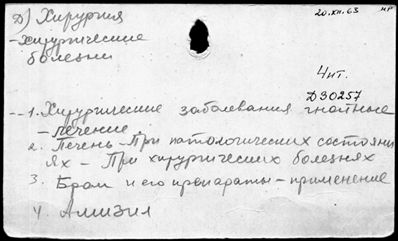 Д) Хирургия
20.XII.63 нг
-хирургические
болезни
4 чит.
Д30257
1. Хирургические заболевания гнойные
- лечение
2. Печень - При патологических состояни
ях - При хирургических болезнях
3. Бром и его препараты - применение
4. Амизил